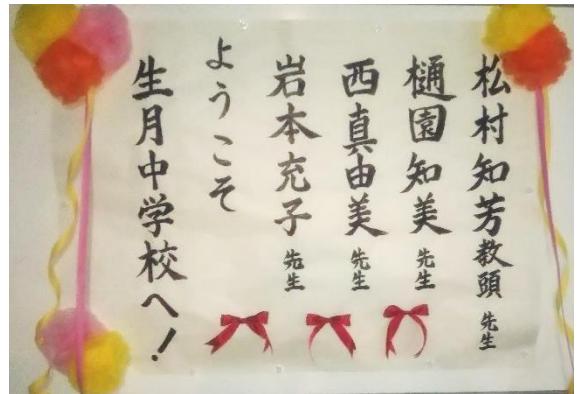 松村知芳教頭先生
樋園知美先生
西真由美先生
岩本充子先生
ようこそ
生月中学校へ！